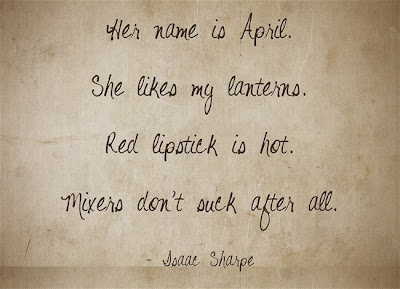 Her name is April.
She likes my lanterns.
Red lipstick is hot.
Mixers don't suck after all.
- Isaac Sharpe